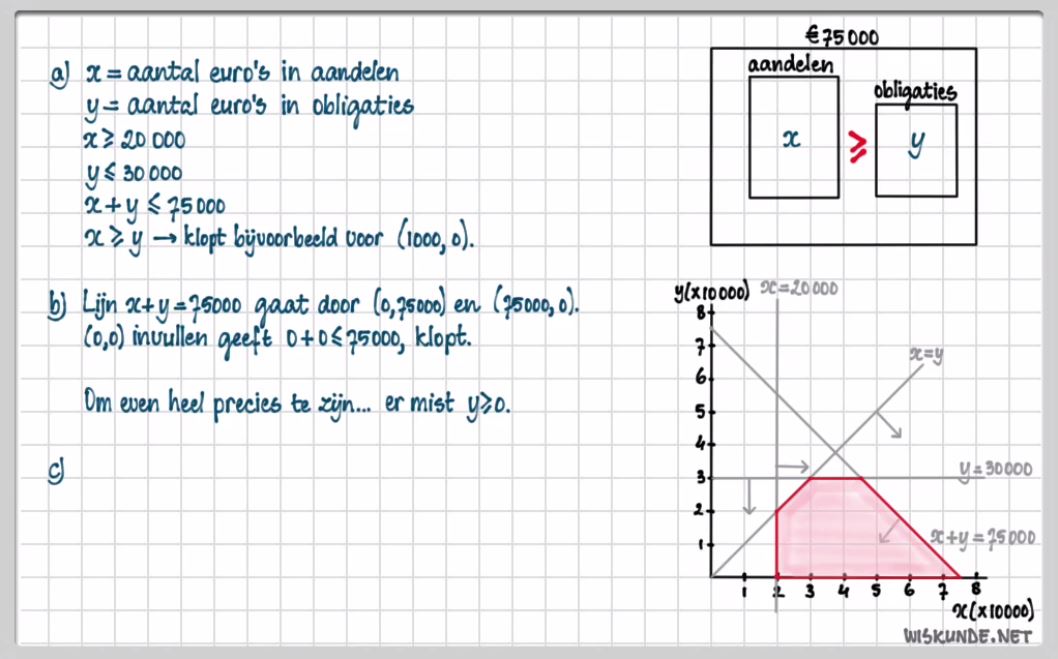 a) x = aantal euro's in aandelen
y = aantal euro's in obligaties
x ⩾ 20 000
y ⩽ 30 000
x + y ⩽ 75 000
x ⩾ y → klopt bijvoorbeeld voor (1000, 0).
b) Lijn x+y = 75000 gaat door (0,75000) en (75000, 0).
(0,0) invullen geeft 0+0 ⩽ 75000, klopt.
Om even heel precies te zijn... er mist y ⩾ 0.
c)
€75 000
aandelen
obligaties
x ⩾ y
y(×10 000) x = 20 000
8
7
x = y
6
5
4
3
y = 30 000
2
1
x + y = 75 000
1 2 3 4 5 6 7 8
x(×10000)
WISKUNDE.NET